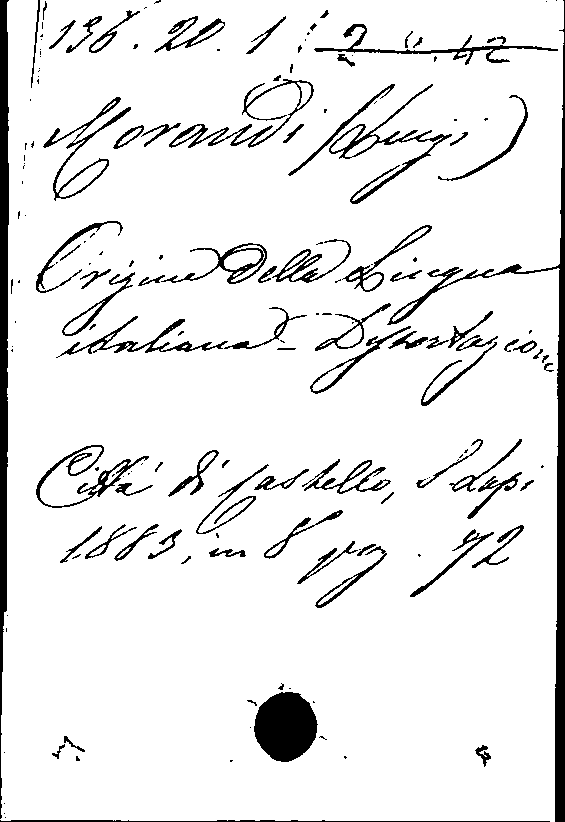 136.20.1 2 4.42
Morandi (Luigi)
Origine della Lingua
italiana - Dissertazione
Città di Castello, S Lapi
1883, in 8° pag. 72